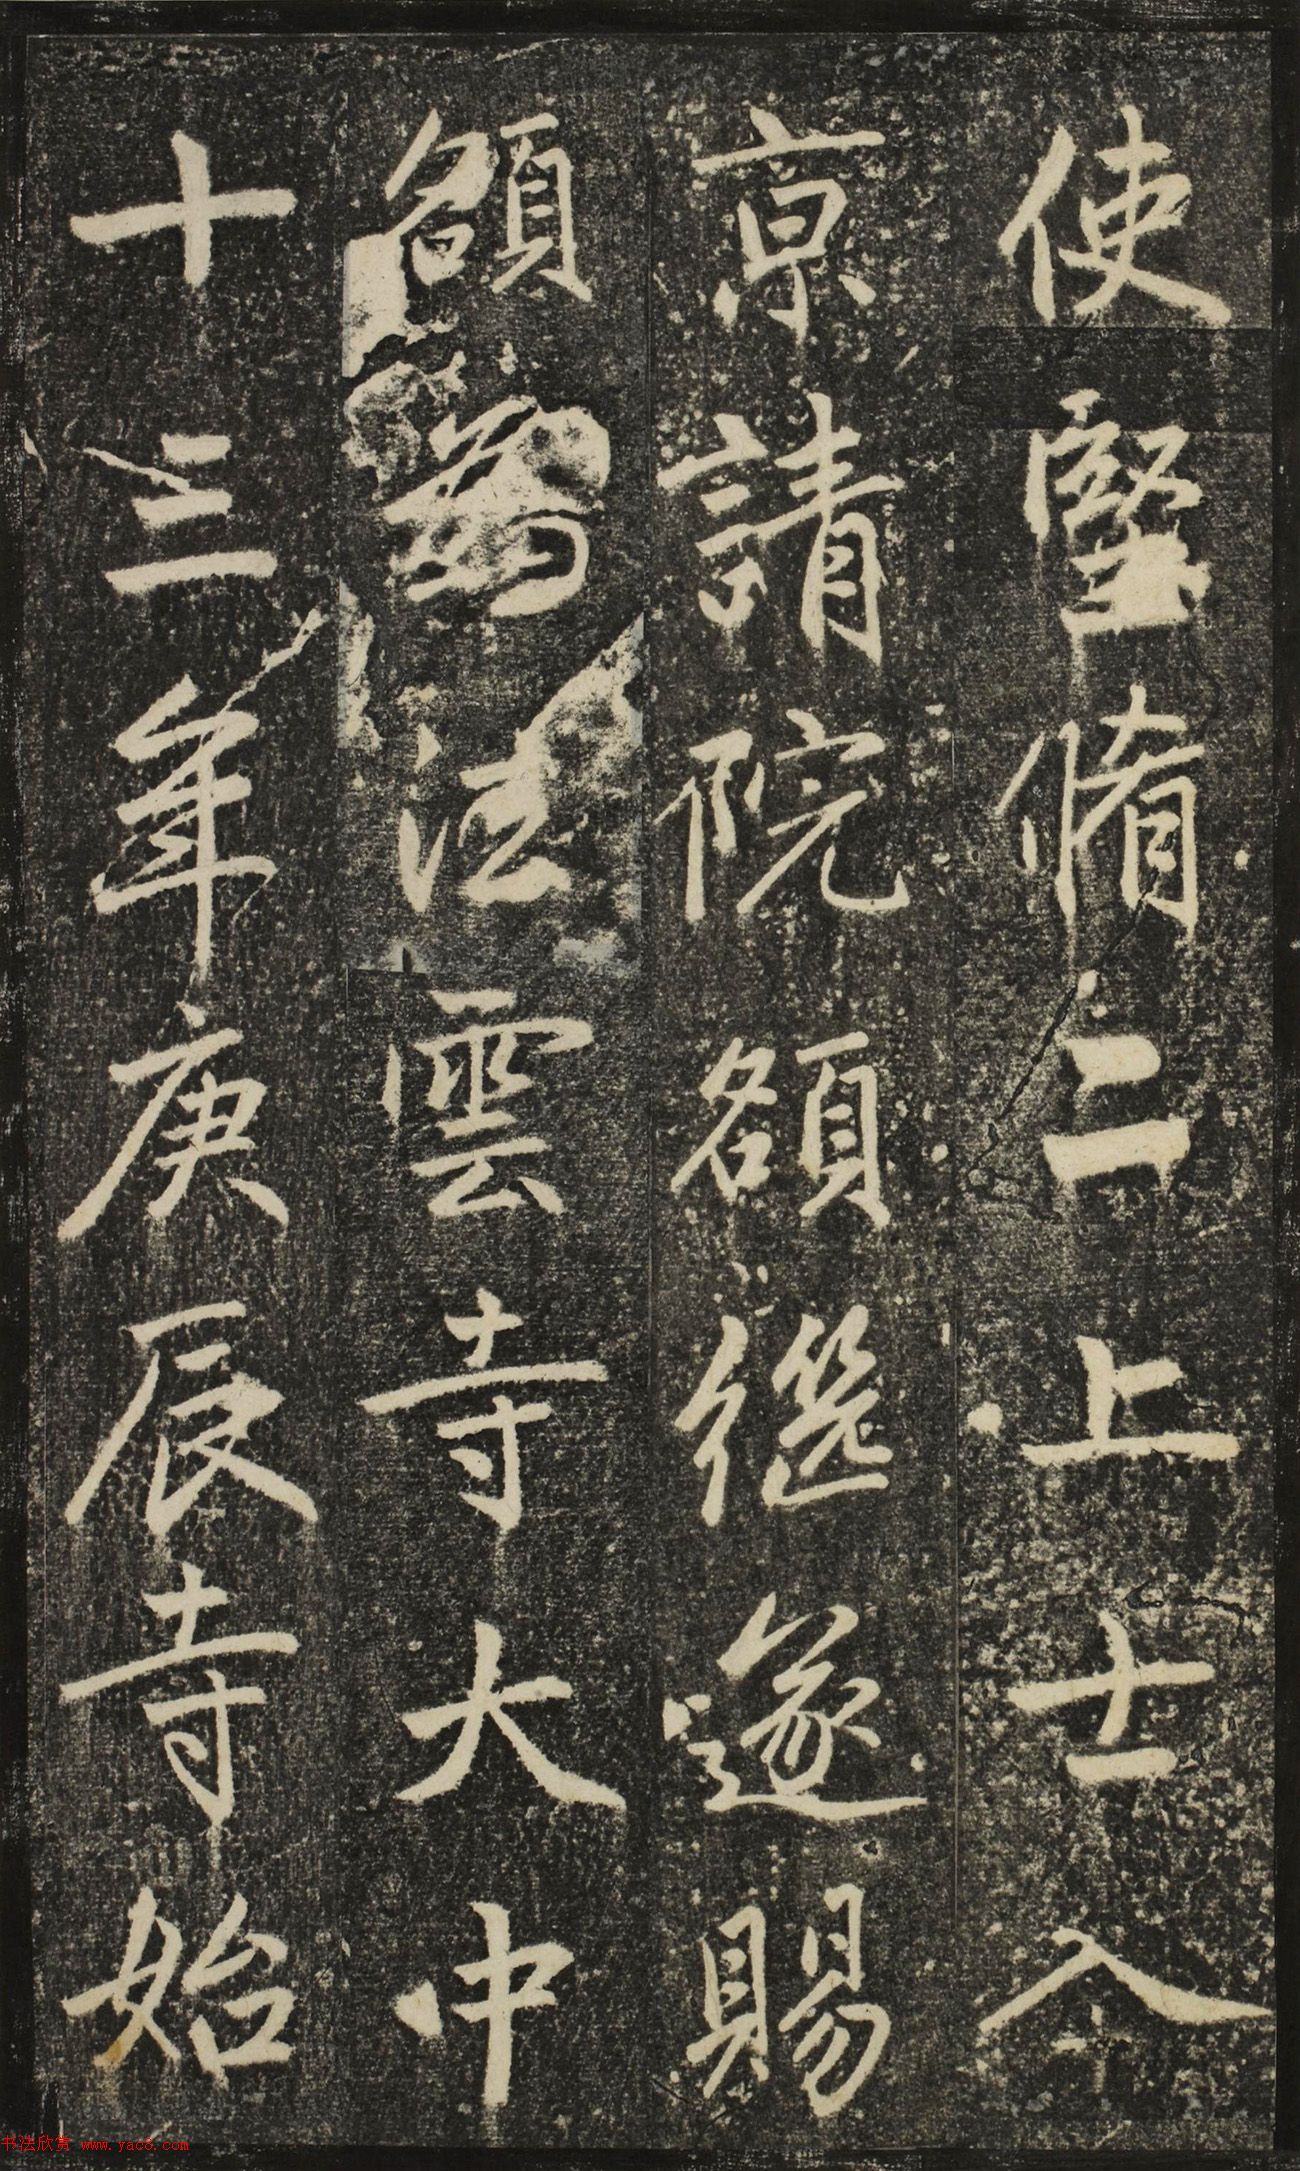 使堅脩二上士入
京請院額繼遂賜
額為法雲寺大中
十三年庚辰寺始
书法欣赏 www.yac8.com